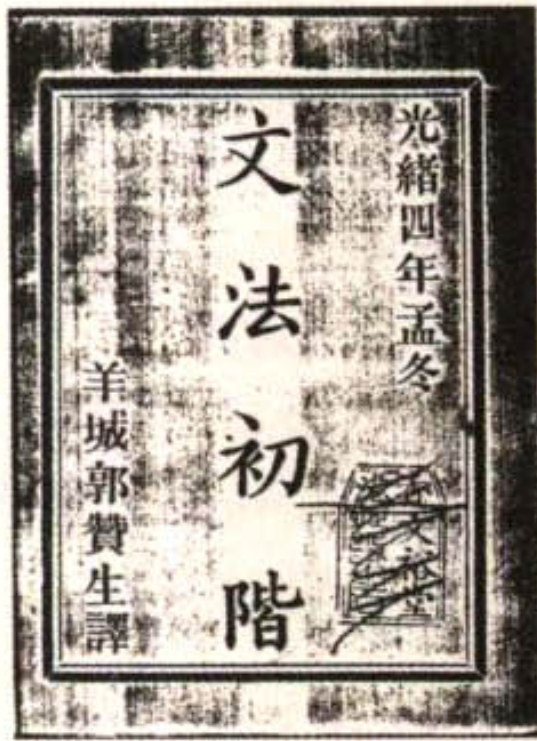 光緒四年孟冬
文法初階
羊城郭贊生譯